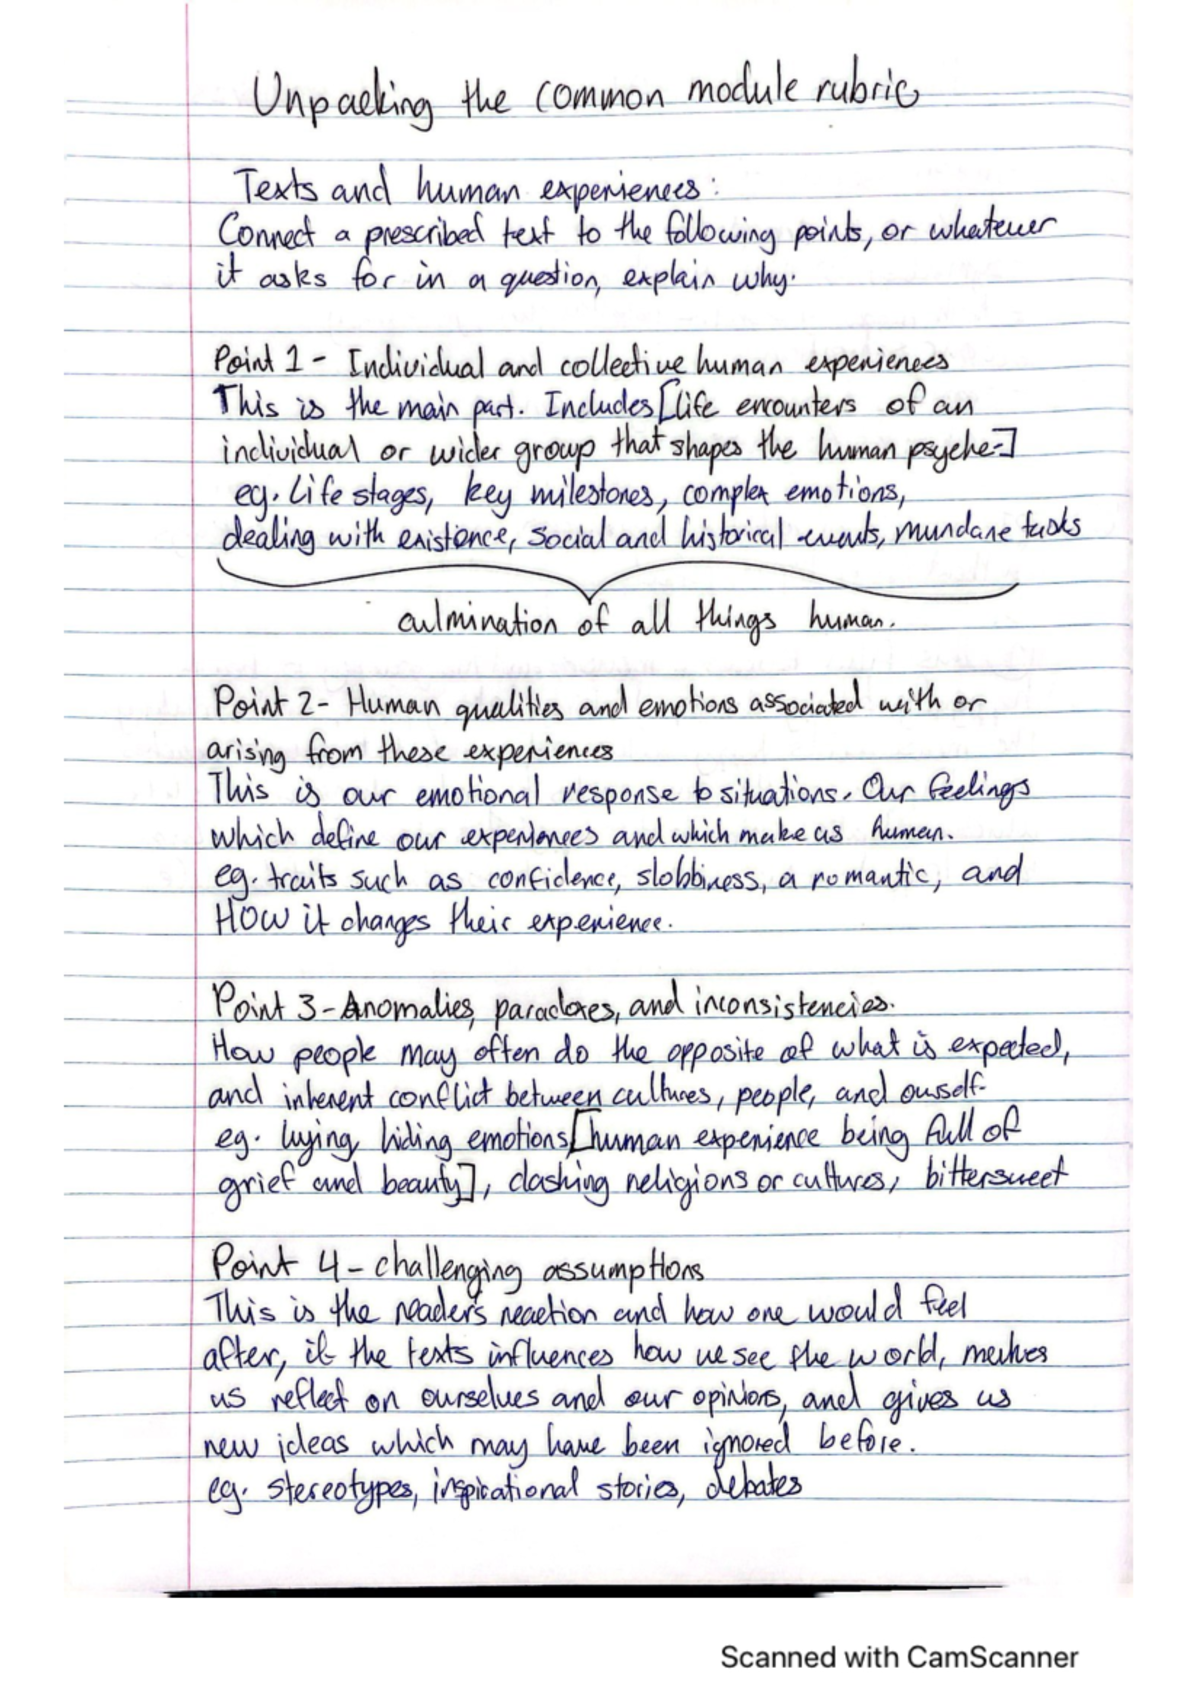 Unpacking the common module rubric
Texts and human experiences:
Connect a prescribed text to the following points, or whatever
it asks for in a question, explain why.
Point 1 - Individual and collective human experiences
This is the main part. Includes [life encounters of an
individual or wider group that shapes the human psyche-]
eg. Life stages, key milestones, complex emotions,
dealing with existence, social and historical events, mundane tasks
culmination of all things human.
Point 2- Human qualities and emotions associated with or
arising from these experiences
This is our emotional response to situations. Our feelings
which define our experiences and which make us human.
eg. traits such as confidence, slobbiness, a romantic, and
HOW it changes their experience.
Point 3 - Anomalies, paradoxes, and inconsistencies.
How people may often do the opposite of what is expected,
and inherent conflict between cultures, people, and ourself-
eg. lying, hiding emotions [human experience being full of
grief and beauty], clashing religions or cultures, bittersweet
Point 4 - challenging assumptions
This is the reader's reaction and how one would feel
after, if the texts influences how we see the world, makes
us reflect on ourselves and our opinions, and gives us
new ideas which may have been ignored before.
eg. stereotypes, inspirational stories, debates
Scanned with CamScanner